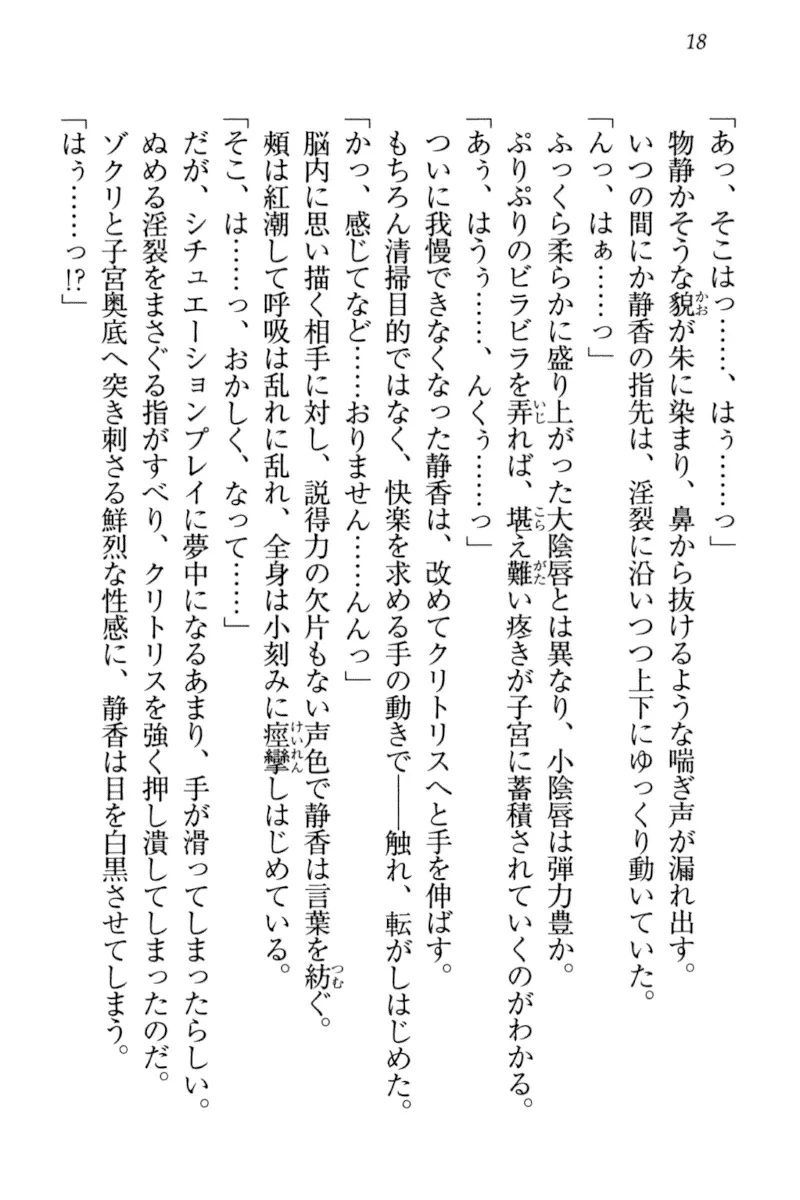 18
「あっ、そこはっ……、はぅ……っ」
物静かそうな貌が朱に染まり、鼻から抜けるような喘ぎ声が漏れ出す。
いつの間にか静香の指先は、淫裂に沿いつつ上下にゆっくり動いていた。
「んっ、はぁ……っ」
ふっくら柔らかに盛り上がった大陰唇とは異なり、小陰唇は弾力豊か。
ぷりぷりのビラビラを弄れば、堪え難い疼きが子宮に蓄積されていくのがわかる。
「あぅ、はうぅ……、んくぅ……っ」
ついに我慢できなくなった静香は、改めてクリトリスへと手を伸ばす。
もちろん清掃目的ではなく、快楽を求める手の動きで――触れ、転がしはじめた。
「かっ、感じてなど……おりません……んんっ」
脳内に思い描く相手に対し、説得力の欠片もない声色で静香は言葉を紡ぐ。
頬は紅潮して呼吸は乱れに乱れ、全身は小刻みに痙攣しはじめている。
「そこ、は……っ、おかしく、なって……」
だが、シチュエーションプレイに夢中になるあまり、手が滑ってしまったらしい。
ぬめる淫裂をまさぐる指がすべり、クリトリスを強く押し潰してしまったのだ。
ゾクリと子宮奥底へ突き刺さる鮮烈な性感に、静香は目を白黒させてしまう。
「はぅ……っ!?」